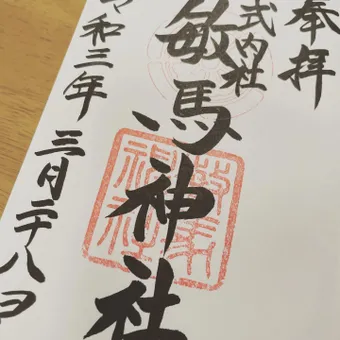 奉拝
式内社
敏馬神社
令和三年 三月二十八日